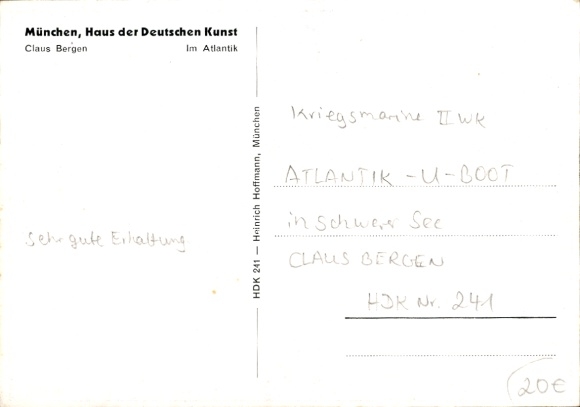 München, Haus der Deutschen Kunst
Claus Bergen Im Atlantik
sehr gute Erhaltung
HDK 241 — Heinrich Hoffmann, München
Kriegsmarine II WK
ATLANTIK - U - BOOT
in schwerer See
CLAUS BERGEN
HDK Nr. 241
20€